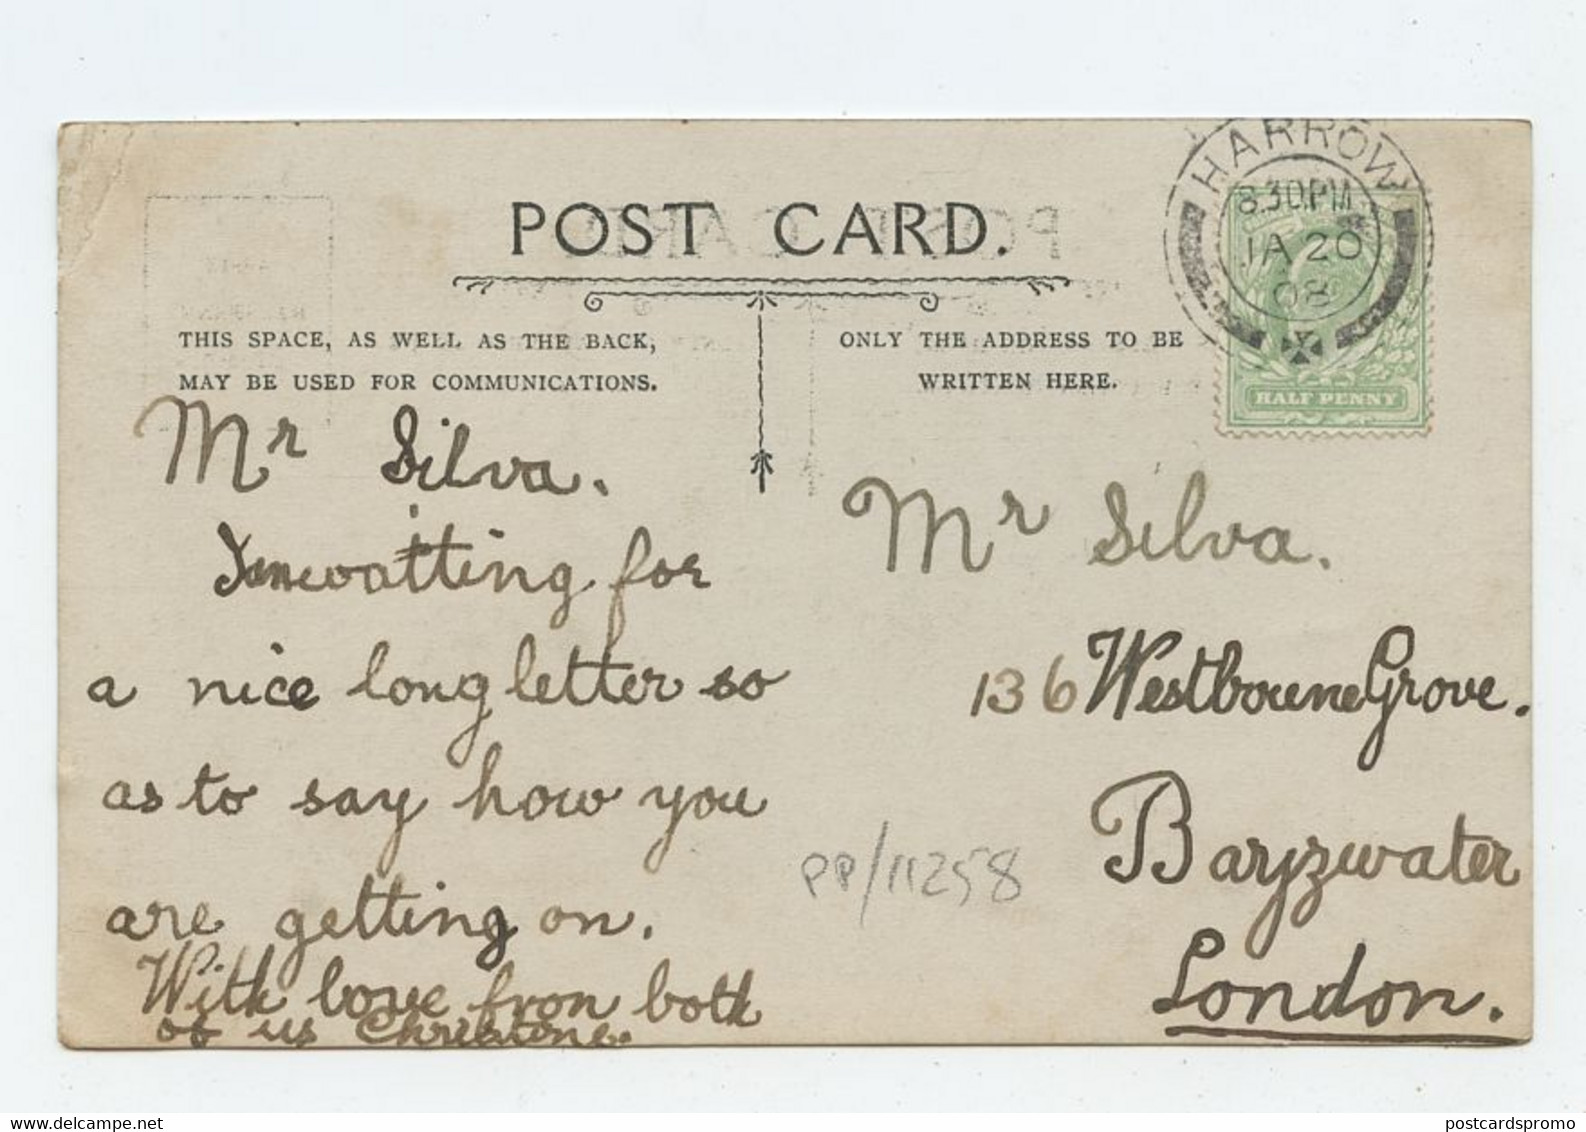 POST CARD.
THIS SPACE, AS WELL AS THE BACK,
MAY BE USED FOR COMMUNICATIONS.
ONLY THE ADDRESS TO BE
WRITTEN HERE.
HARROW
8.30.PM
JA 20
08
HALF PENNY
Mr Silva.
watting for
a nice long letter so
as to say how you
are getting on.
With love from both
of us Christine.
Mr Silva.
136 Westbourne Grove.
Bayzwater
London.
PP/11258
www.delcampe.net
postcardspromo